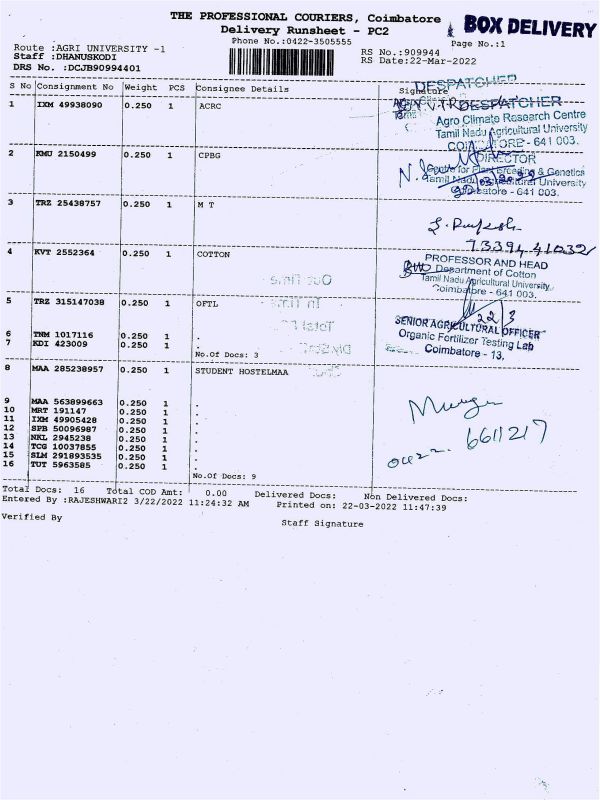 THE PROFESSIONAL COURIERS, Coimbatore
BOX DELIVERY
Delivery Runsheet - PC2
Phone No.:0422-3505555
Page No.:1
Route :AGRI UNIVERSITY -1
RS No.:909944
Staff :DHANUSKODI
RS Date:22-Mar-2022
DRS No. :DCJB90994401
S No Consignment No Weight PCS Consignee Details Signature
DESPATCHER
1 IXM 49938090 0.250 1 ACRC
DESPATCHER
Agro Climate Research Centre
Tamil Nadu Agricultural University
COIMBATORE - 641 003.
2 KMU 2150499 0.250 1 CPBG
DIRECTOR
Centre for Plant Breeding & Genetics
Tamil Nadu Agricultural University
Coimbatore - 641 003.
3 TRZ 25438757 0.250 1 M T
73394 41032
4 KVT 2552364 0.250 1 COTTON
PROFESSOR AND HEAD
Department of Cotton
Tamil Nadu Agricultural University
Coimbatore - 641 003.
5 TRZ 315147038 0.250 1 OFTL
22/3
SENIOR AGRICULTURAL OFFICER
Organic Fertilizer Testing Lab
Coimbatore - 13.
6 TNM 1017116 0.250 1 .
7 KDI 423009 0.250 1 .
No.Of Docs: 3
8 MAA 285238957 0.250 1 STUDENT HOSTELMAA
9 MAA 563899663 0.250 1 .
10 MRT 191147 0.250 1 .
11 IXM 49905428 0.250 1 .
12 SPB 50096987 0.250 1 .
13 NKL 2945238 0.250 1 .
14 TCG 10037855 0.250 1 .
15 SLM 291893535 0.250 1 .
16 TUT 5963585 0.250 1 .
0422- 6611217
No.Of Docs: 9
Total Docs: 16 Total COD Amt: 0.00 Delivered Docs: Non Delivered Docs:
Entered By :RAJESHWARI2 3/22/2022 11:24:32 AM Printed on: 22-03-2022 11:47:39
Verified By
Staff Signature